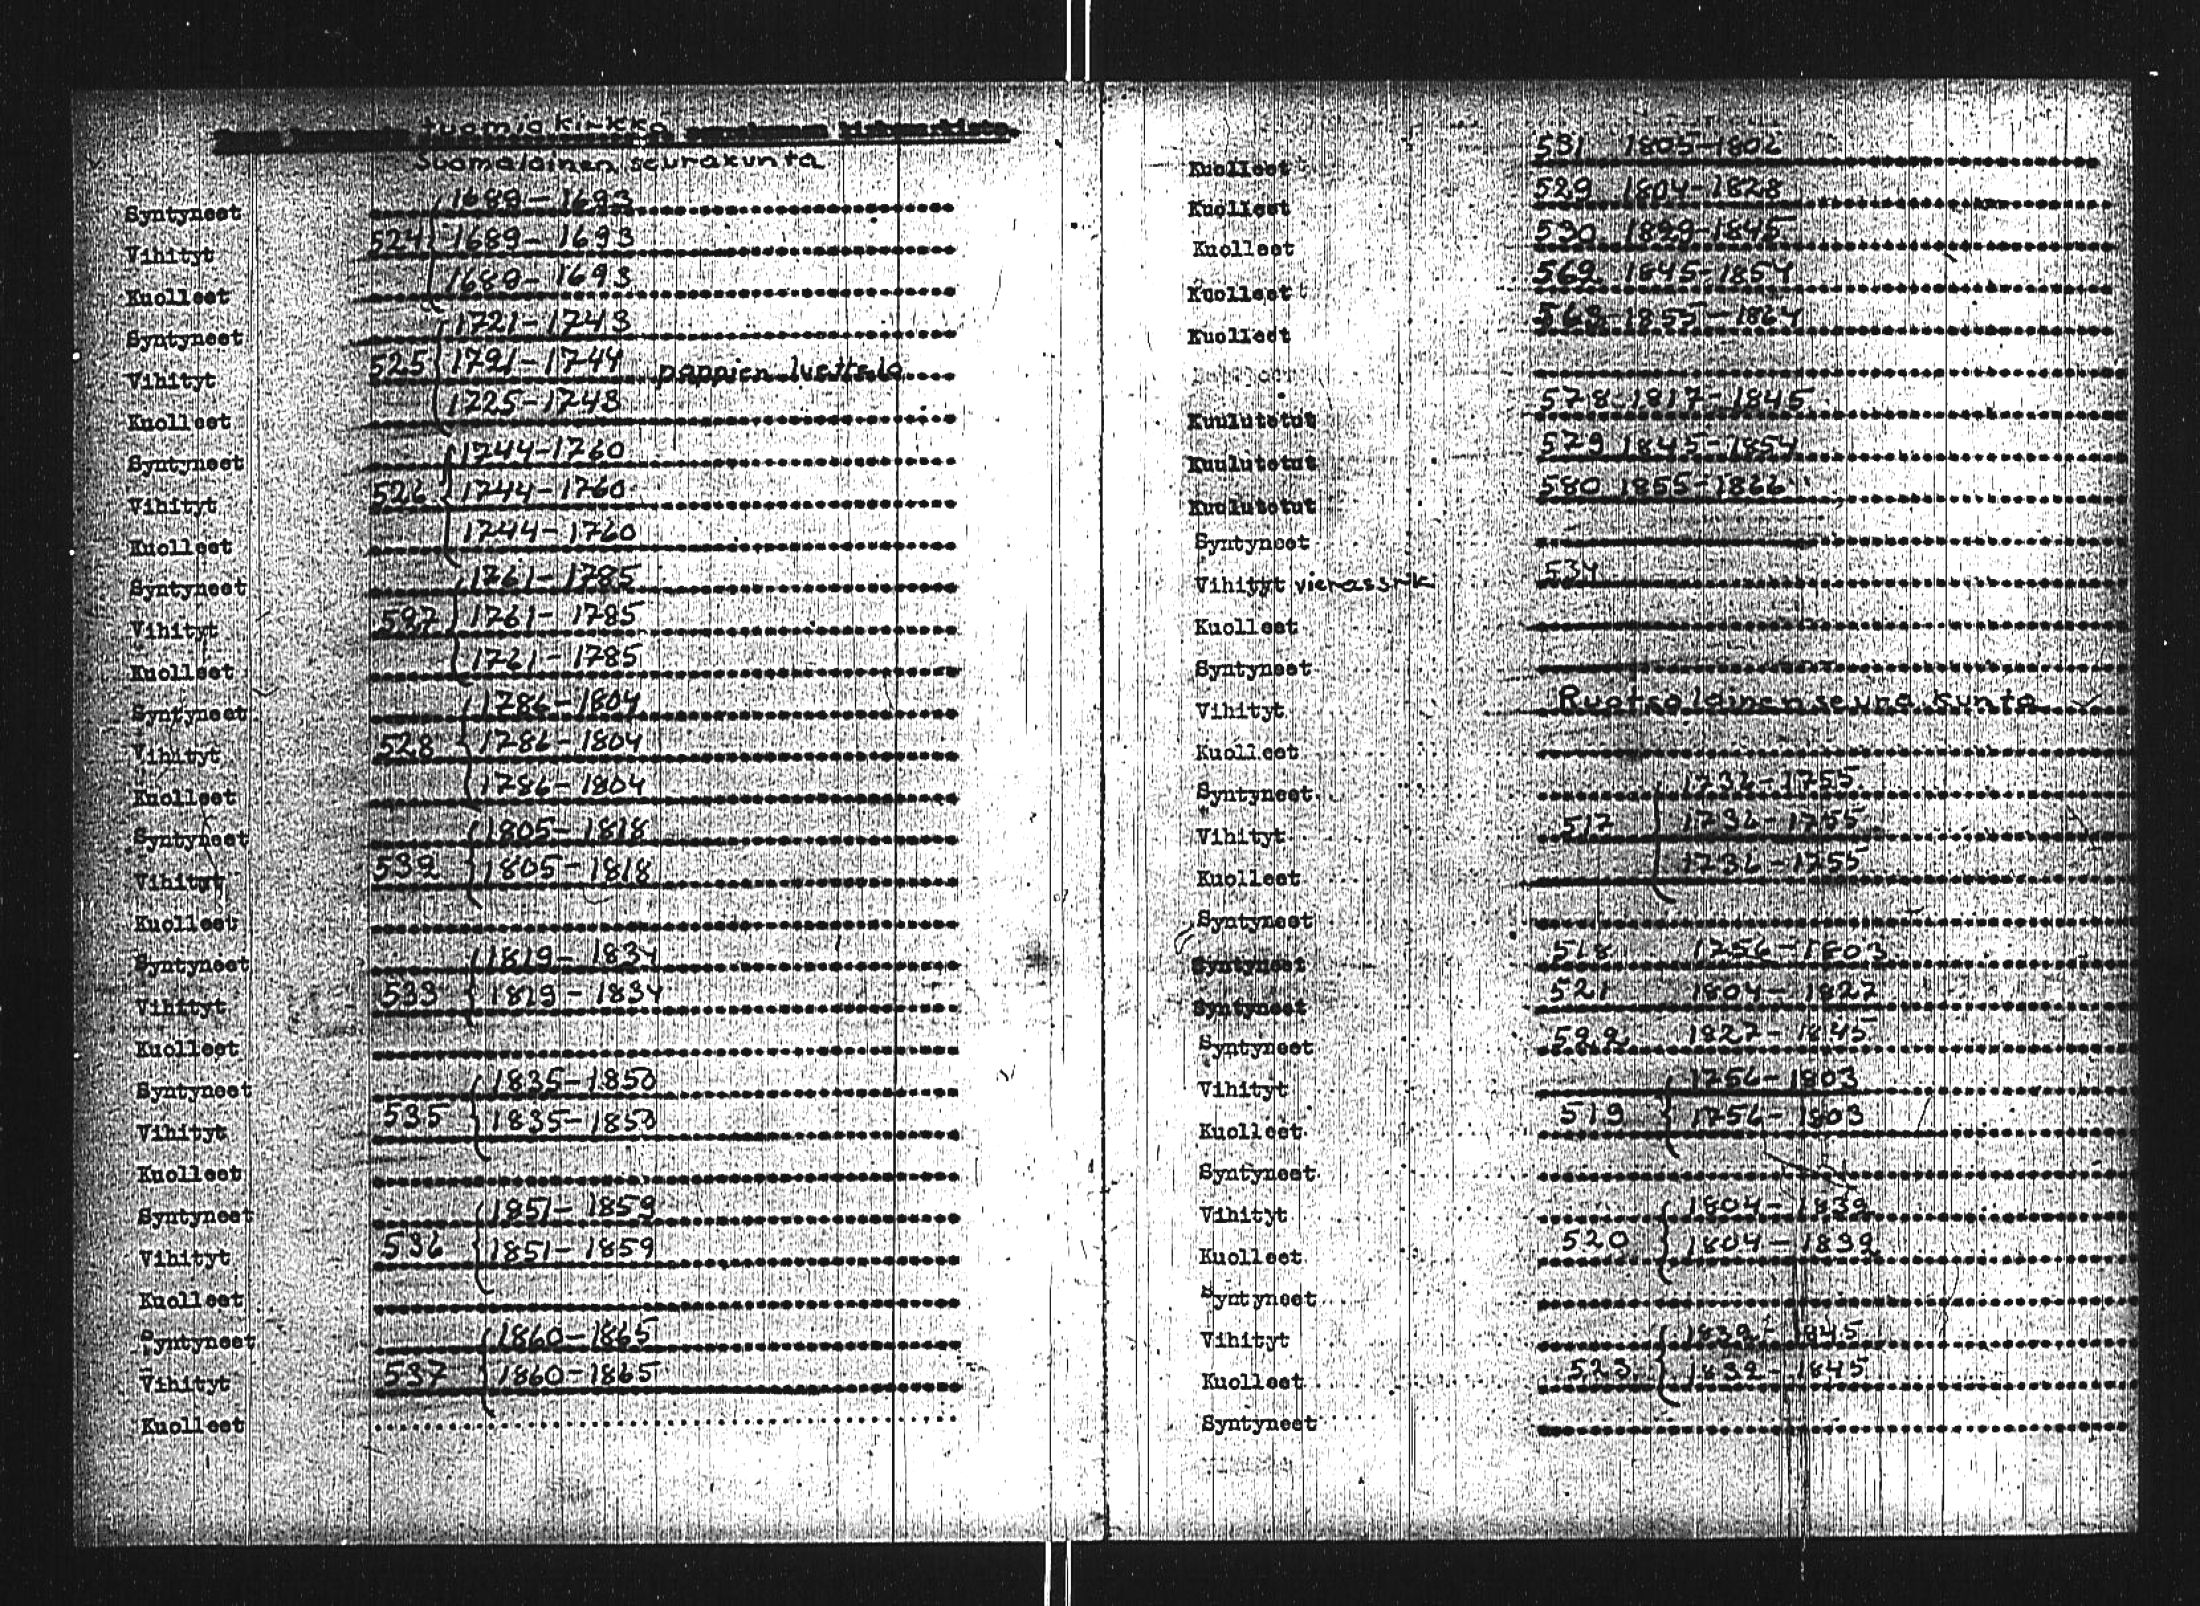 tuomio kirkko seurakunnan kirkonarkisto.
Suomalainen seurakunta
Syntyneet 1689-1693
Vihityt 524 1689-1693
Kuolleet 1689-1693
Syntyneet 1721-1743
Vihityt 525 1721-1744 pappien luettelo
Kuolleet 1725-1743
Syntyneet 1744-1760
Vihityt 526 1744-1760
Kuolleet 1744-1760
Syntyneet 1761-1785
Vihityt 527 1761-1785
Kuolleet 1761-1785
Syntyneet 1786-1804
Vihityt 528 1786-1804
Kuolleet 1786-1804
Syntyneet 1805-1818
Vihityt 532 1805-1818
Kuolleet
Syntyneet 1819-1834
Vihityt 533 1819-1834
Kuolleet
Syntyneet 1835-1850
Vihityt 535 1835-1850
Kuolleet
Syntyneet 1851-1859
Vihityt 536 1851-1859
Kuolleet
Syntyneet 1860-1865
Vihityt 537 1860-1865
Kuolleet
Kuolleet 531 1805-1802
Kuolleet 529 1804-1828
Kuolleet 530 1829-1845
Kuolleet 562 1845-1854
Kuolleet 563 1855-1864
Kuulutetut 578 1817-1845
Kuulutetut 579 1845-1854
Kuulutetut 580 1855-1866
Syntyneet
Vihityt vieras srk 534
Kuolleet
Syntyneet
Vihityt Ruotsalainen seurakunta
Kuolleet
Syntyneet 1736-1755
Vihityt 517 1736-1755
Kuolleet 1736-1755
Syntyneet
Syntyneet 518 1756-1803
Syntyneet 521 1804-1827
Syntyneet 522 1827-1845
Vihityt 1756-1803
Kuolleet 519 1756-1803
Syntyneet
Vihityt 1804-1832
Kuolleet 520 1804-1832
Syntyneet
Vihityt 1832-1845
Kuolleet 523 1832-1845
Syntyneet